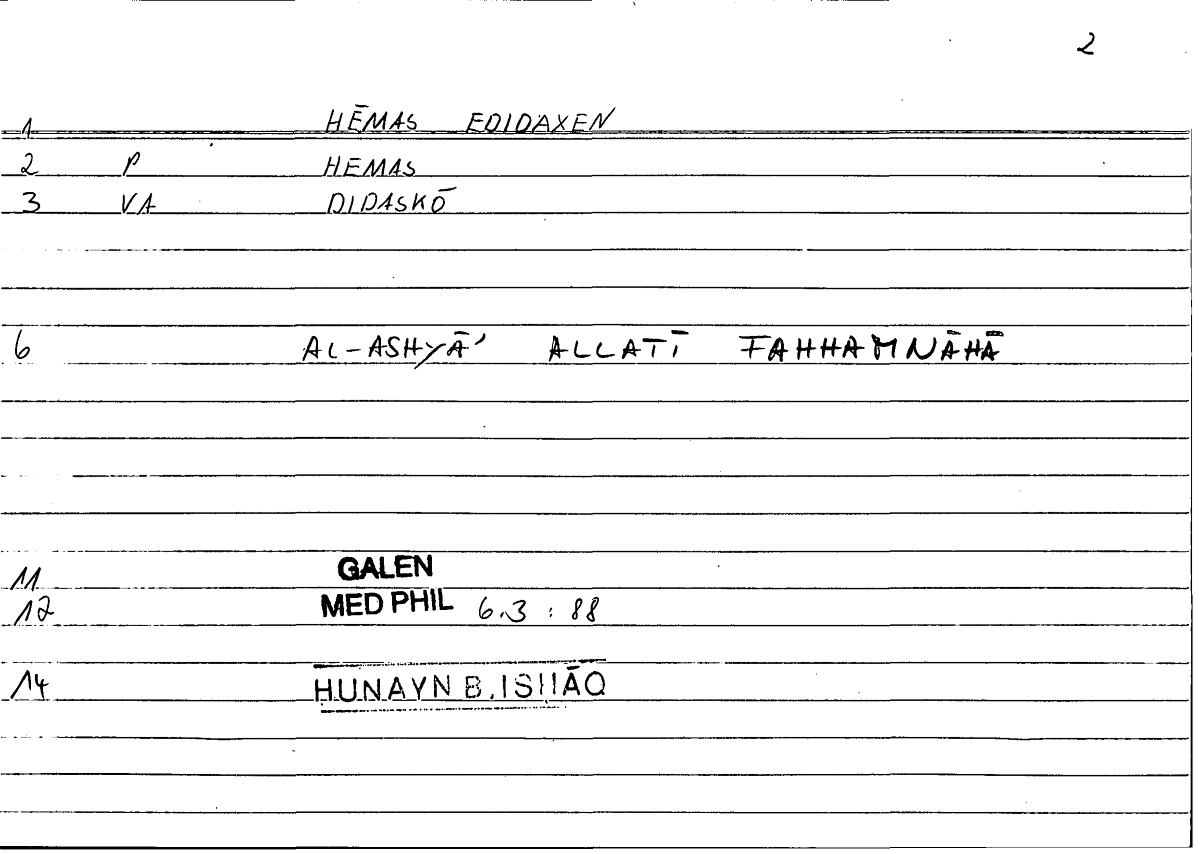 2
1 HĒMAS EDIDAXEN
2 P HEMAS
3 VA DIDASKŌ
6 AL-ASHYĀ' ALLATĪ FAHHAMNĀHĀ
11 GALEN
12 MED PHIL 6.3 : 88
14 HUNAYN B. ISHĀQ